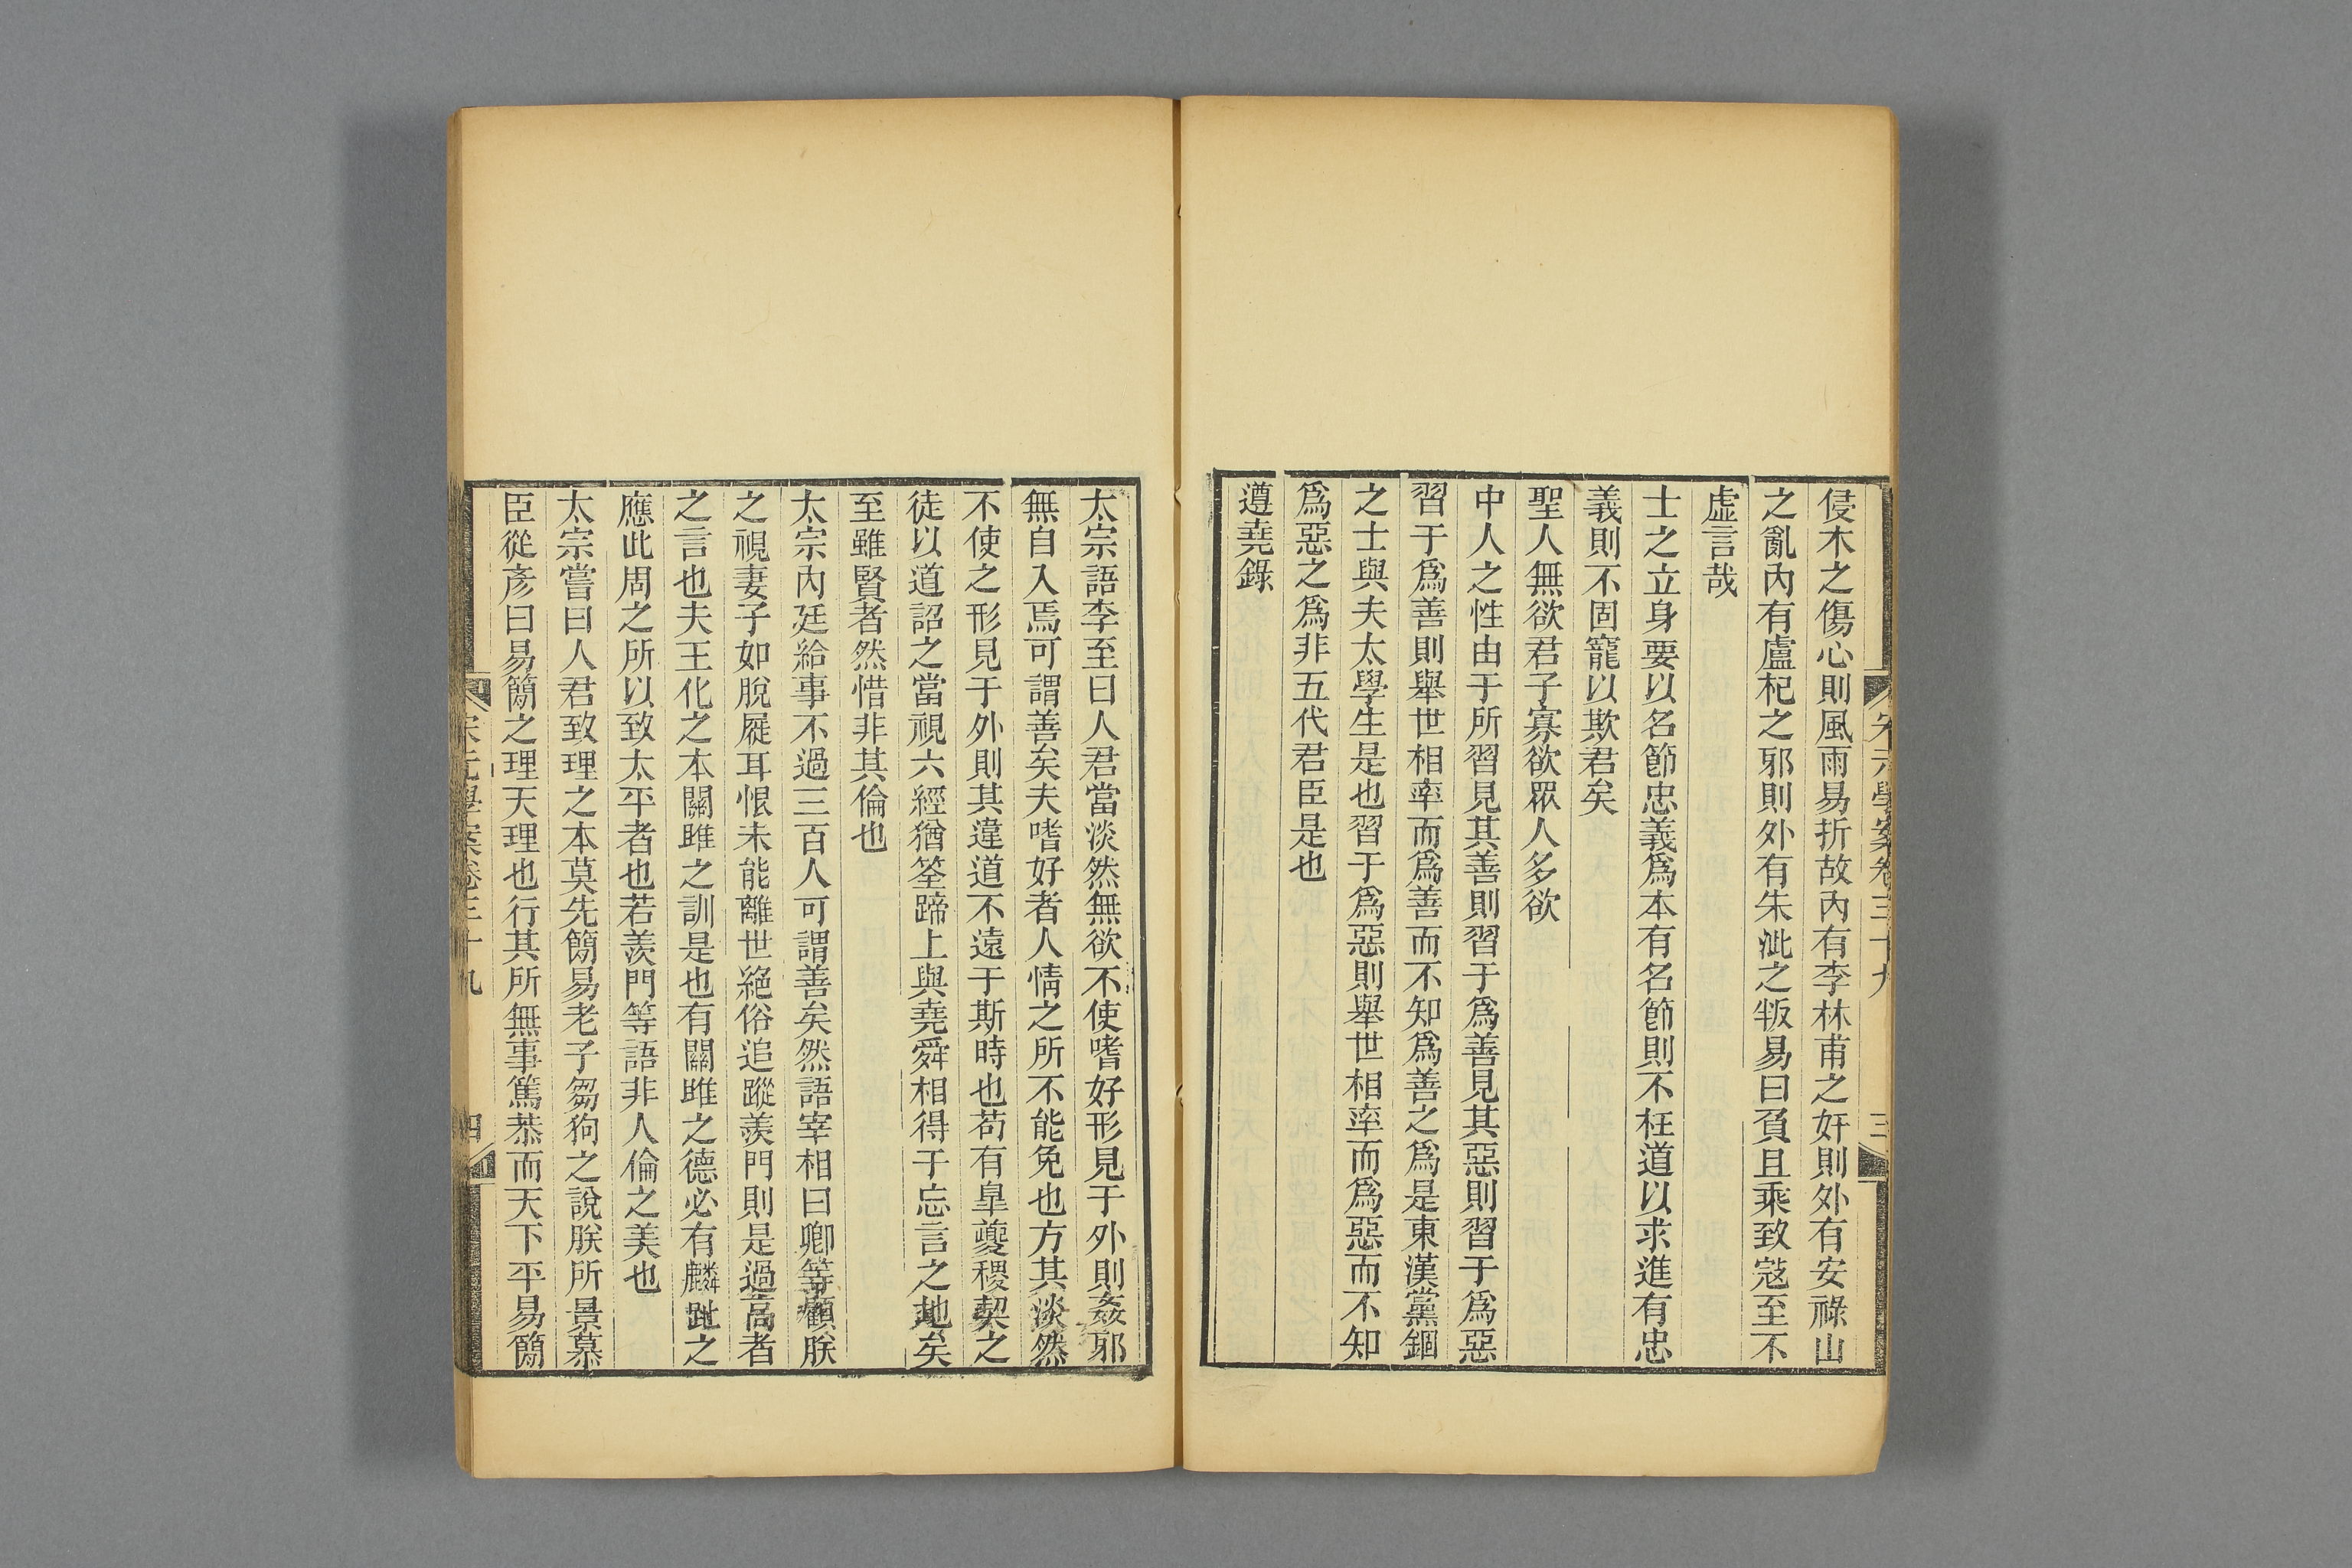 侵木之傷心則風雨易折故內有李林甫之奸則外有安祿山
之亂內有盧杞之邪則外有朱泚之叛易曰負且乘致寇至不
虛言哉
士之立身要以名節忠義爲本有名節則不枉道以求進有忠
義則不固寵以欺君矣
聖人無欲君子寡欲眾人多欲
中人之性由于所習見其善則習于爲善見其惡則習于爲惡
習于爲善則舉世相率而爲善而不知爲善之爲是東漢黨錮
之士與夫太學生是也習于爲惡則舉世相率而爲惡而不知
爲惡之爲非五代君臣是也
遵堯錄
太宗語李至曰人君當淡然無欲不使嗜好形見于外則姦邪
無自入焉可謂善矣夫嗜好者人情之所不能免也方其淡然
不使之形見于外則其違道不遠于斯時也苟有皐夔稷契之
徒以道詔之當視六經猶筌蹄上與堯舜相得于忘言之地矣
至雖賢者然惜非其倫也
太宗內廷給事不過三百人可謂善矣然語宰相曰卿等顧朕
之視妻子如脫屣耳恨未能離世絕俗追蹤羨門則是過高者
之言也夫王化之本關雎之訓是也有關雎之德必有麟趾之
應此周之所以致太平者也若羨門等語非人倫之美也
太宗嘗曰人君致理之本莫先簡易老子芻狗之說朕所景慕
臣從彥曰易簡之理天理也行其所無事篤恭而天下平易簡
宋元學案卷三十九
四